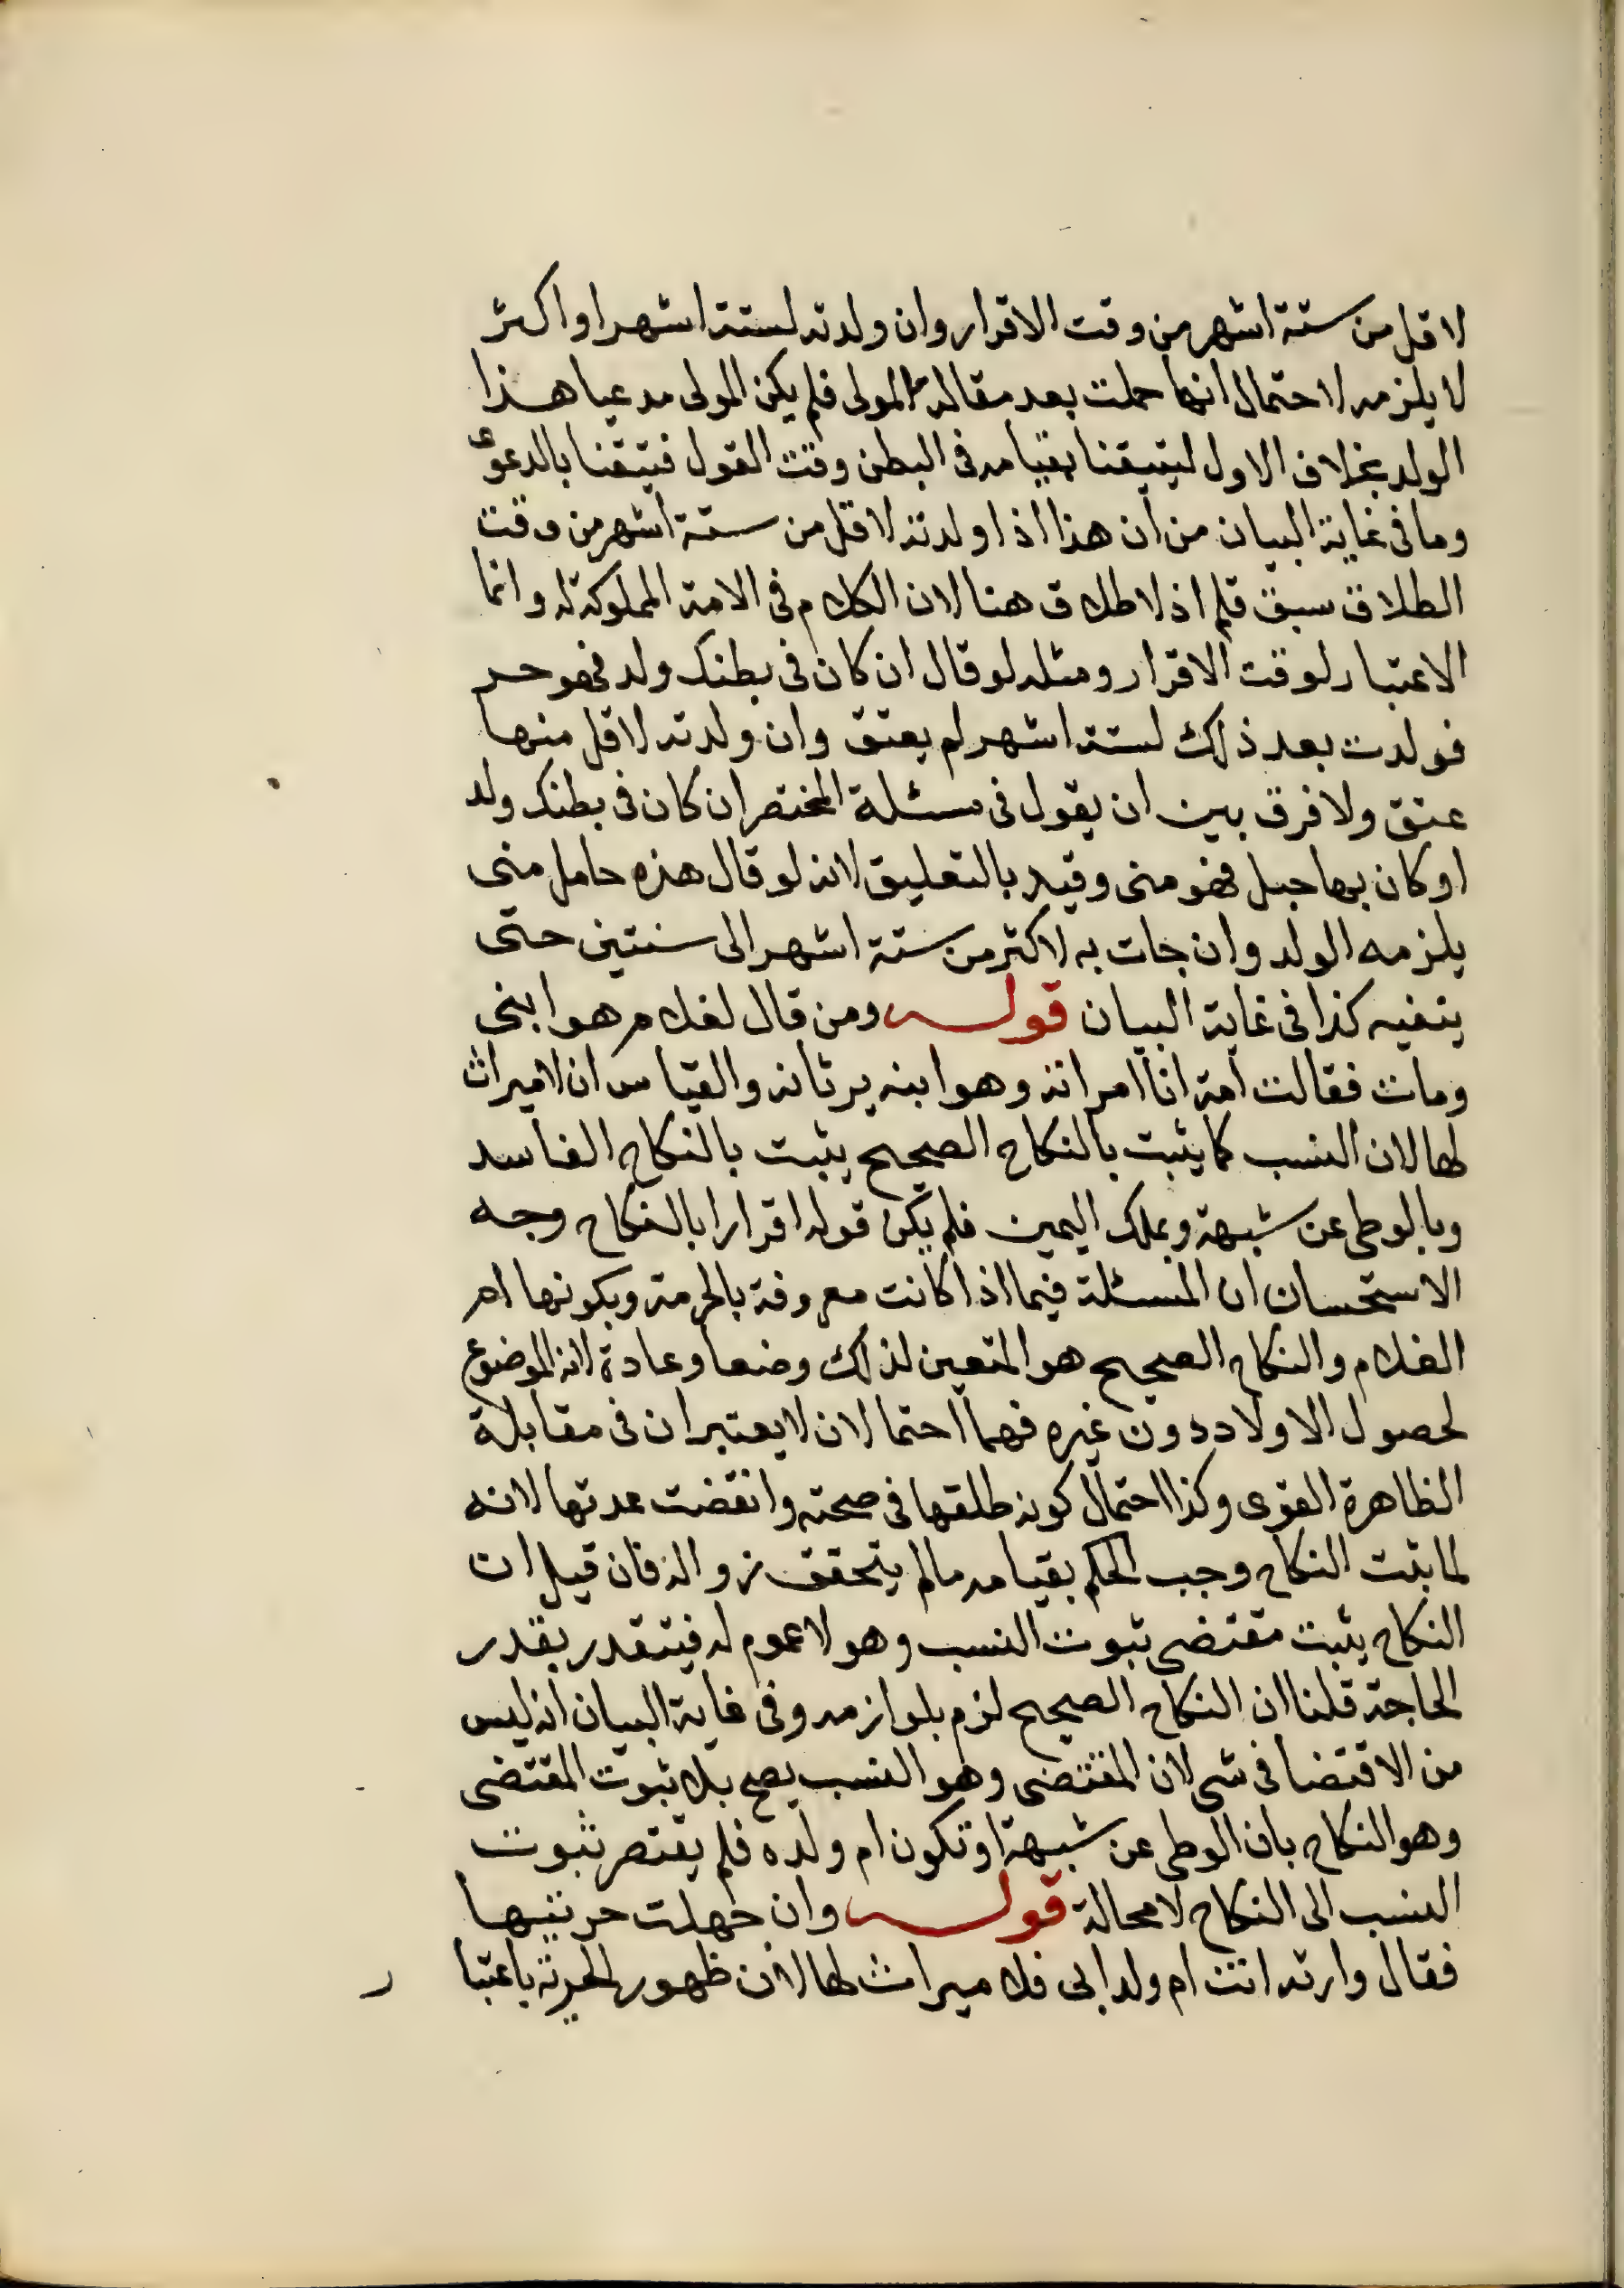 لاقل من ستة اشهر من وقت الاقرار وان ولدته لستة اشهر او اكثر
لا يلزمه لاحتمال انها حملت بعد مقالة المولى فلم يكن المولى مدعيا هذا
الولد بخلاف الاول لتيقننا بقيامه فى البطن وقت القول فتيقنا بالدعوى
وما فى غاية البيان من ان هذا اذا ولدته لاقل من ستة اشهر من وقت
الطلاق سبق قلم اذ لا طلاق هنا لان الكلام فى الامة المملوكة له وانما
الاعتبار لوقت الاقرار ومثله لو قال ان كان فى بطنك ولد فهو حر
فولدت بعد ذلك لستة اشهر لم يعتق وان ولدته لاقل منها
عتق ولا فرق بين ان يقول فى مسئلة المختصر ان كان فى بطنك ولد
او كان بها حبل فهو منى وقيد بالتعليق لانه لو قال هذه حامل منى
يلزمه الولد وان جات به لاكثر من ستة اشهر الى سنتين حتى
ينفيه كذا فى غاية البيان قوله ومن قال لغلام هو ابنى
ومات فقالت امه انا امراته وهو ابنه يرثانه والقياس ان لا ميراث
لها لان النسب كما يثبت بالنكاح الصحيح يثبت بالنكاح الفاسد
وبالوطى عن شبهة وبملك اليمين فلم يكن قوله اقرارا بالنكاح وجه
الاستحسان ان المسئلة فيما اذا كانت معروفة بالحرمة وبكونها ام
الغلام والنكاح الصحيح هو المتعين لذلك وضعا وعادة لانه الموضوع
لحصول الاولاد دون غيره فهما احتمالان لا يعتبران فى مقابلة
الظاهرة القوى وكذا احتمال كونه طلقها فى صحته وانقضت عدتها لانه
لما ثبت النكاح وجب الحكم بقيامه مالم يتحقق زواله فان قيل ان
النكاح يثبت مقتضى ثبوت النسب وهو لا عموم له فيتقدر بقدر
الحاجة قلنا ان النكاح الصحيح لزم بلوازمه وفى غاية البيان انه ليس
من الاقتضا فى شى لان المقتضى وهو النسب يصح بلا ثبوت المقتضى
وهو النكاح بان الوطى عن شبهة او تكون ام ولده فلم يقتصر ثبوت
النسب الى النكاح لا محالة قوله وان جهلت حريتها
فقال وارثه انت ام ولد ابى فلا ميراث لها لان ظهور الحرية باعتبا ر